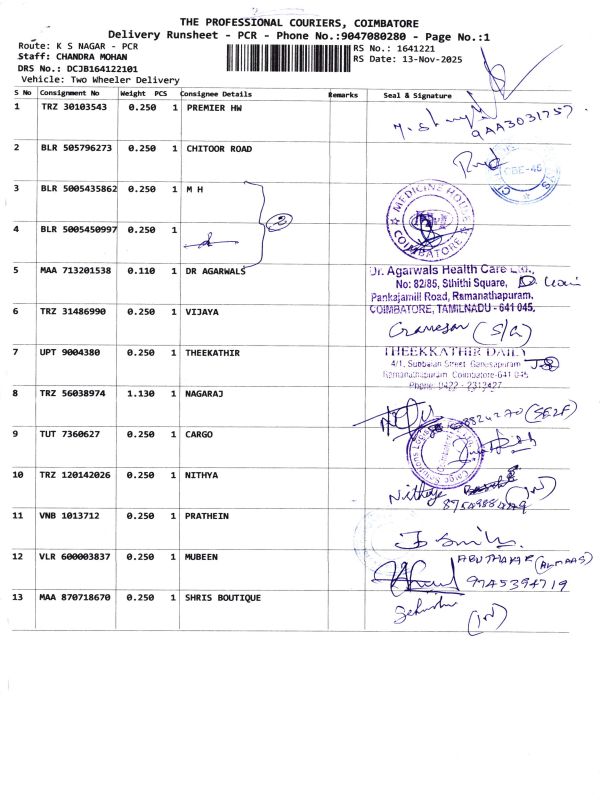 THE PROFESSIONAL COURIERS, COIMBATORE
Delivery Runsheet - PCR - Phone No.:9047080280 - Page No.:1
Route: K S NAGAR - PCR
RS No.: 1641221
Staff: CHANDRA MOHAN
RS Date: 13-Nov-2025
DRS No.: DCJB164122101
Vehicle: Two Wheeler Delivery
S No Consignment No Weight PCS Consignee Details Remarks Seal & Signature
1 TRZ 30103543 0.250 1 PREMIER HW
9AA3031757
2 BLR 505796273 0.250 1 CHITOOR ROAD
CBE-45
3 BLR 5005435862 0.250 1 M H
MEDICINE HOUSE
COIMBATORE
4 BLR 5005450997 0.250 1
2
5 MAA 713201538 0.110 1 DR AGARWALS
Dr. Agarwals Health Care Ltd.,
No: 82/85, Sthithi Square,
Pankajamill Road, Ramanathapuram,
COIMBATORE, TAMILNADU - 641 045.
6 TRZ 31486990 0.250 1 VIJAYA
7 UPT 9004380 0.250 1 THEEKATHIR
THEEKKATHIR DAILY
4/1, Street Ganesapuram
Ramanathapuram, Coimbatore-641 045
Phone: 0422 - 2313427
8 TRZ 56038974 1.130 1 NAGARAJ
(SELF)
9 TUT 7360627 0.250 1 CARGO
10 TRZ 120142026 0.250 1 NITHYA
Nithya
11 VNB 1013712 0.250 1 PRATHEIN
12 VLR 600003837 0.250 1 MUBEEN
ABUTHAKAR (ALMAAS)
9745394719
13 MAA 870718670 0.250 1 SHRIS BOUTIQUE